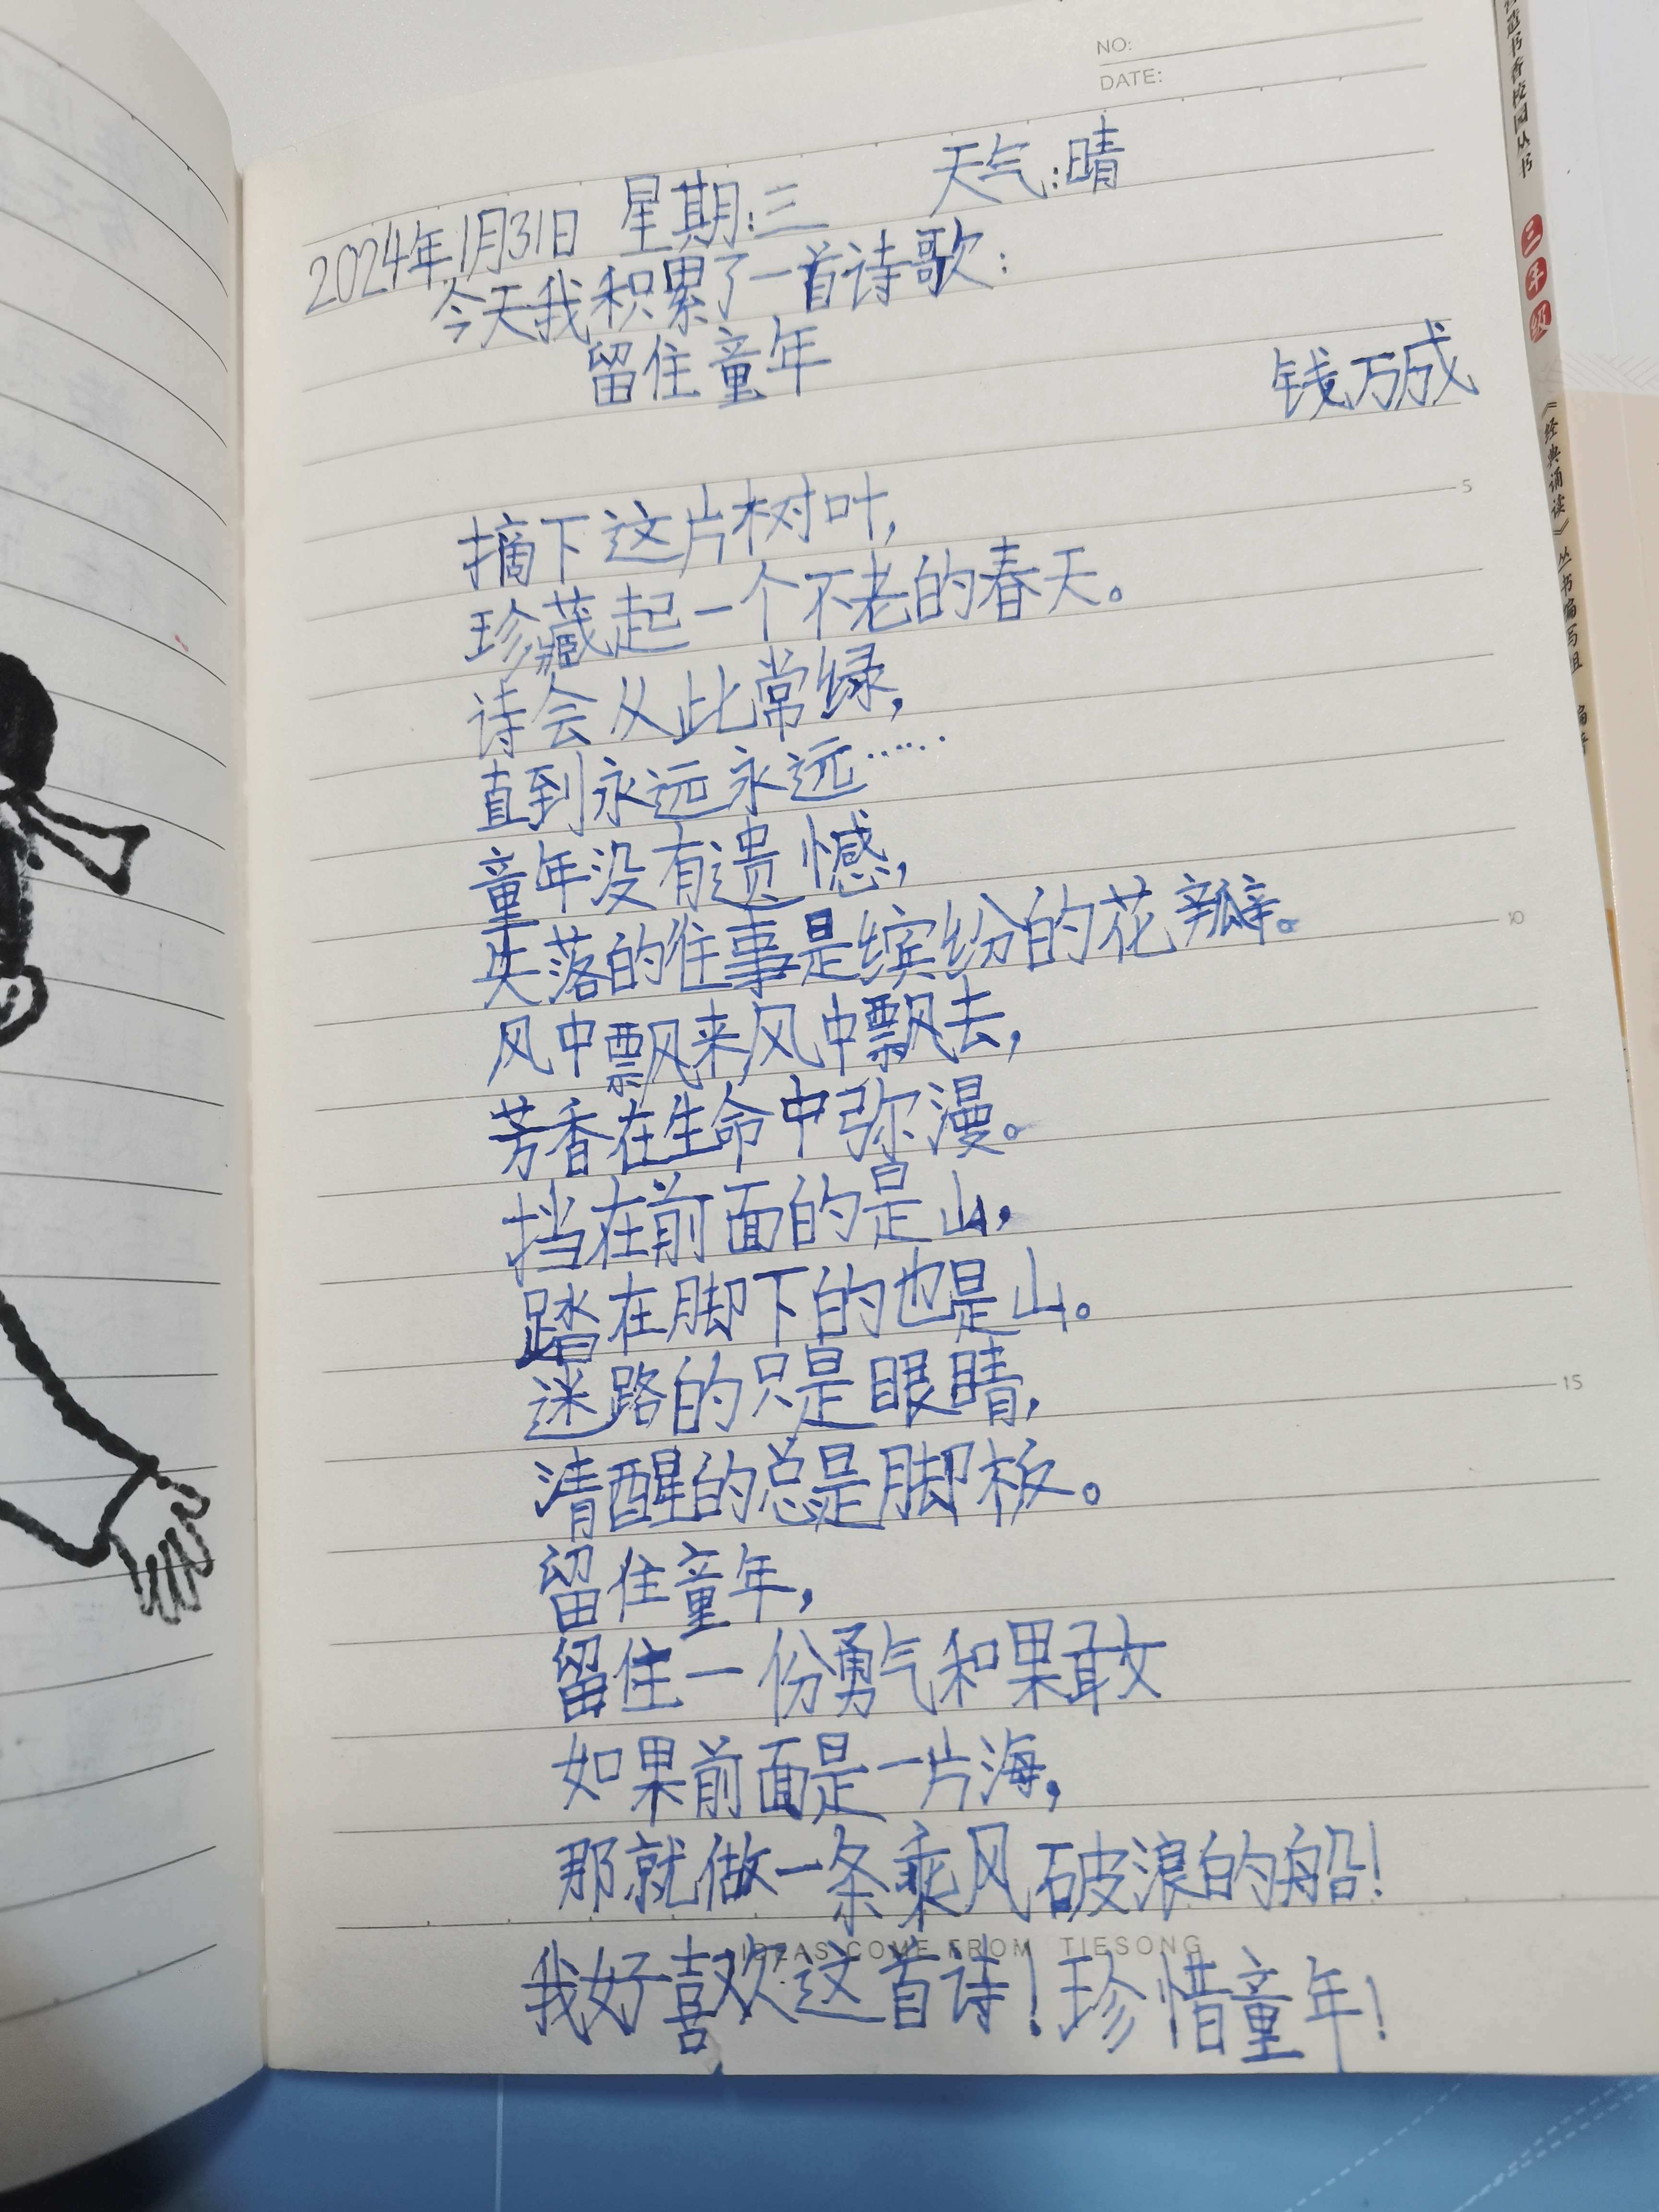 NO:
DATE:
2024年1月31日 星期:三 天气:晴
今天我积累了一首诗歌:
留住童年
钱万成
摘下这片树叶,
珍藏起一个不老的春天。
诗会从此常绿,
直到永远永远……
童年没有遗憾,
失落的往事是缤纷的花瓣。
风中飘来风中飘去,
芳香在生命中弥漫。
挡在前面的是山,
踏在脚下的也是山。
迷路的只是眼睛,
清醒的总是脚板。
留住童年,
留住一份勇气和果敢
如果前面是一片海,
那就做一条乘风破浪的船!
IDEAS COME FROM TIESONG
我好喜欢这首诗!珍惜童年!
5
10
15
书香校园丛书
三年级
《经典诵读》丛书编写组